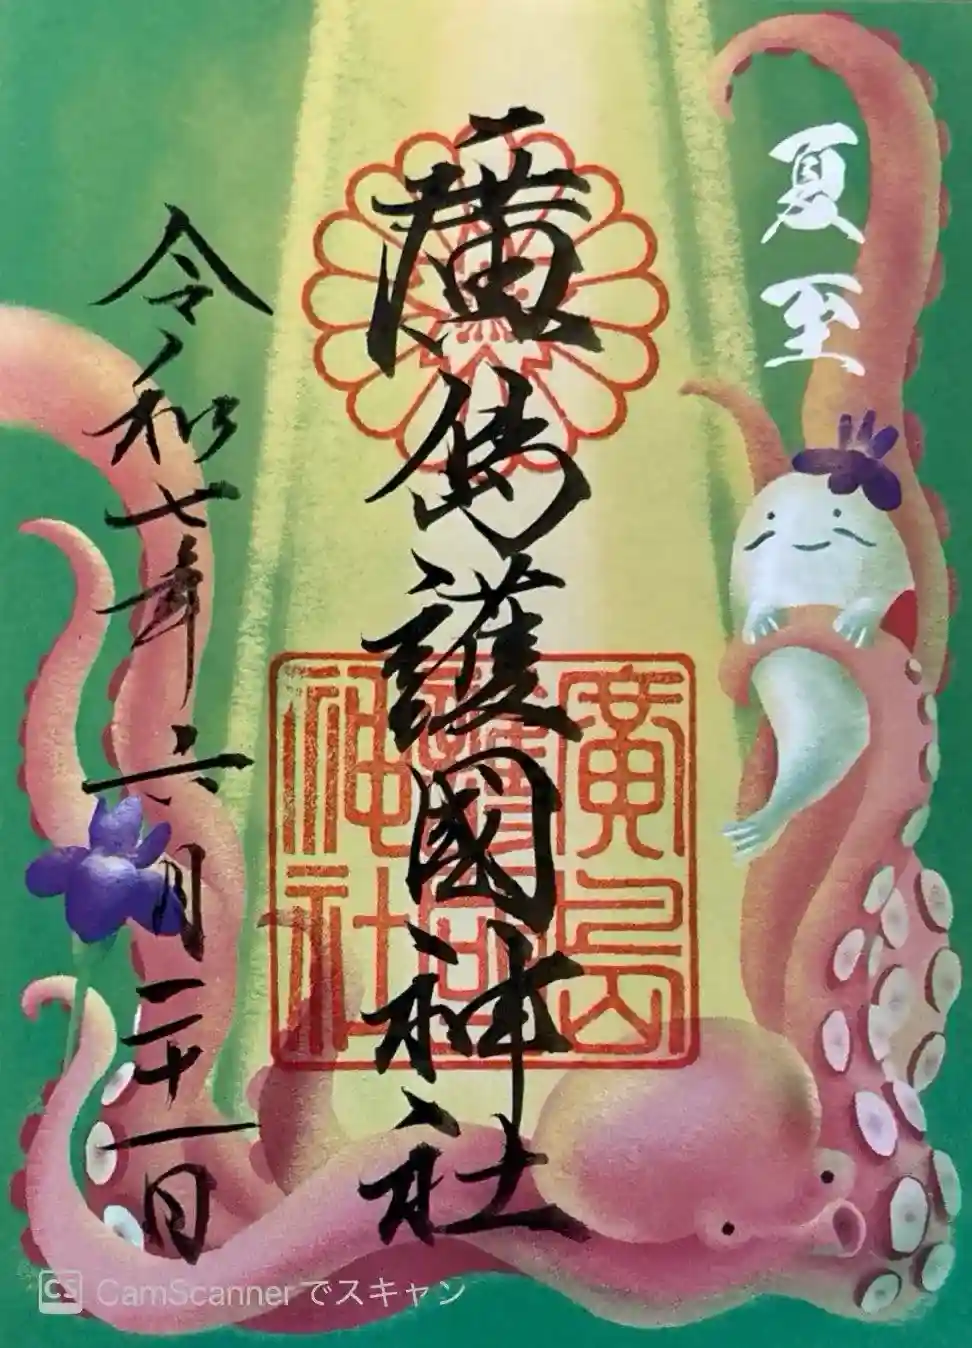 夏至
廣島護國神社
令和七年六月二十一日
廣島護國神社
CS CamScanner でスキャン